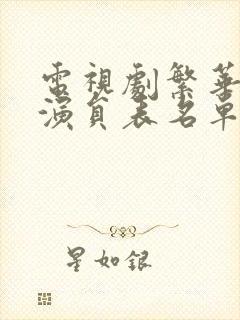 電視劇繁華
演員表名單
星如銀